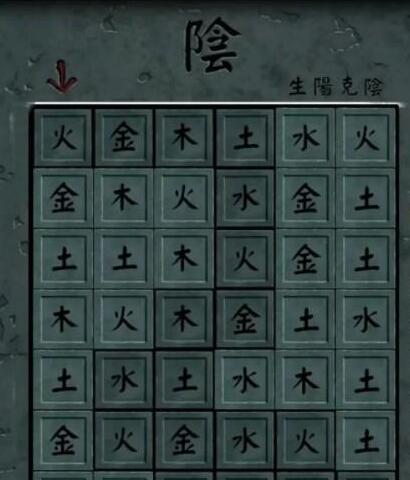 陰
生陽克陰
火金木土水火
金木火水金土
土土木火金土
木火木金土水
土水土水木土
金火金水火土